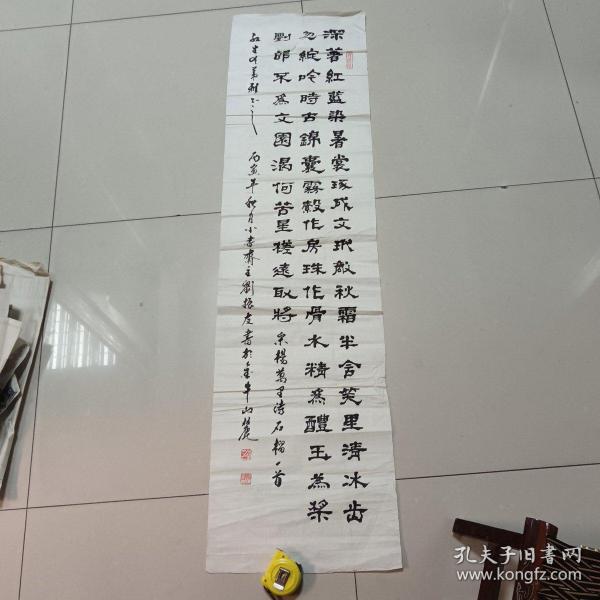 深著紅藍染暑裳琢成文玳敵秋霜半含笑里清冰齿
忽綻吟時古錦囊霧縠作房珠作骨水精為醴玉為漿
劉郎不為文園渴何苦星槎遠取將 宋楊萬里詩石榴一首
生 弟雅正之 丙寅年秋月小書齋主劉振友書於金牛山麓
孔夫子旧书网
www.kongfz.com